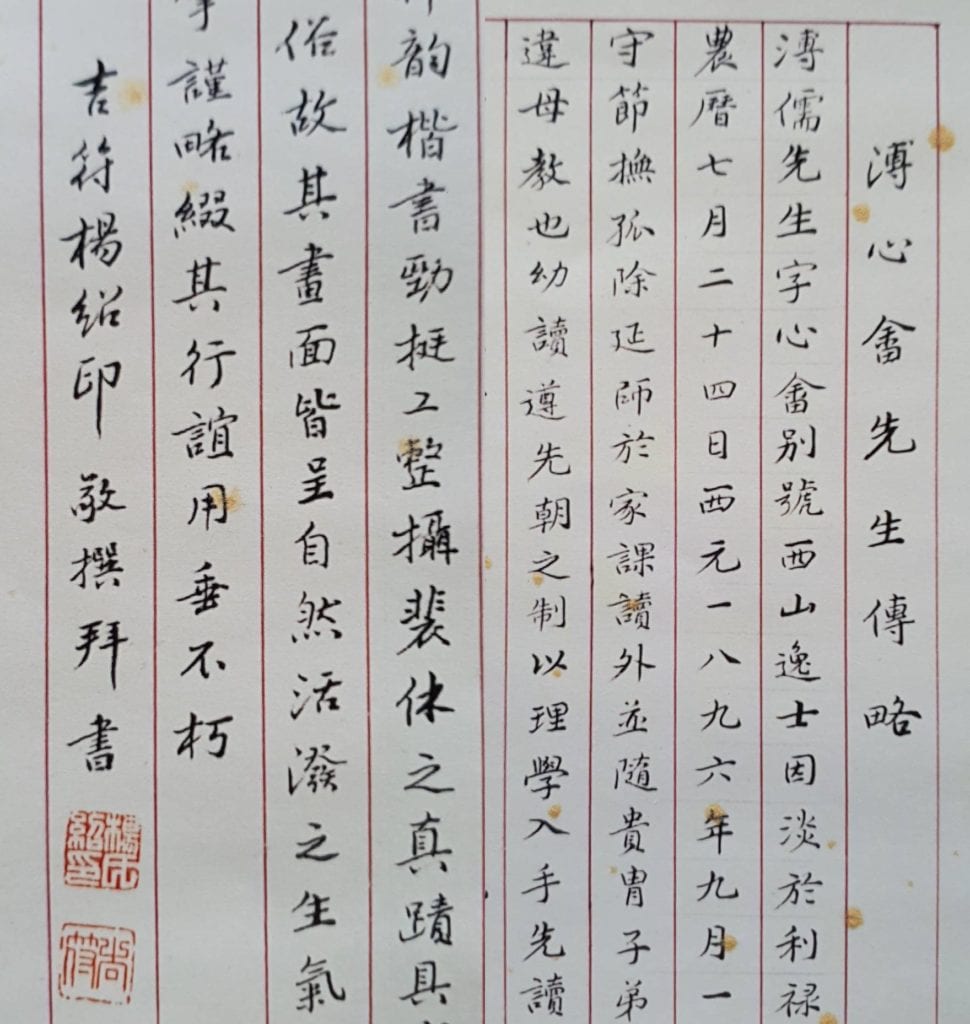 溥心畬先生傳略
溥儒先生字心畬别號西山逸士因淡於利禄
農曆七月二十四日西元一八九六年九月一
守節撫孤除延師於家課讀外並隨貴胄子弟
違母教也幼讀遵先朝之制以理學入手先讀
韵楷書勁挺工整攝裴休之真蹟具
俗故其畫面皆呈自然活潑之生氣
謹略綴其行誼用垂不朽
吉符楊紹印敬撰拜書
楊氏紹印